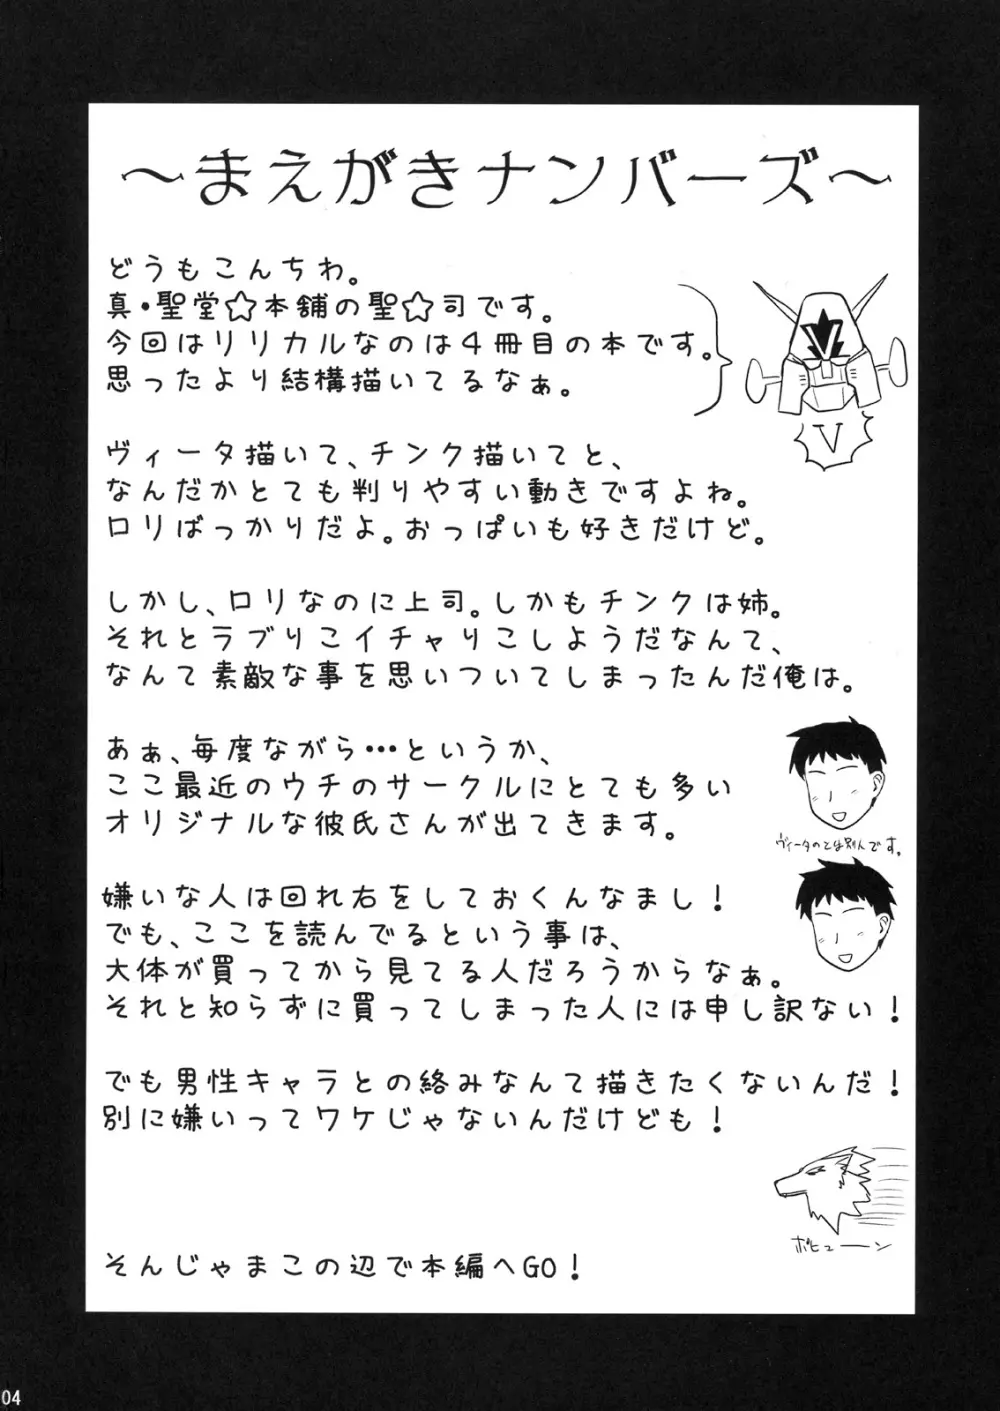 ～まえがきナンバーズ～
どうもこんちわ。
真・聖堂☆本舗の聖☆司です。
今回はリリカルなのは４冊目の本です。
思ったより結構描いてるなぁ。
V
ヴィータ描いて、チンク描いてと、
なんだかとても判りやすい動きですよね。
ロリばっかりだよ。おっぱいも好きだけど。
しかし、ロリなのに上司。しかもチンクは姉。
それとラブりこイチャりこしようだなんて、
なんて素敵な事を思いついてしまったんだ俺は。
あぁ、毎度ながら…というか、
ここ最近のウチのサークルにとても多い
オリジナルな彼氏さんが出てきます。
ヴィータのとは別人です。
嫌いな人は回れ右をしておくんなまし！
でも、ここを読んでるという事は、
大体が買ってから見てる人だろうからなぁ。
それと知らずに買ってしまった人には申し訳ない！
でも男性キャラとの絡みなんて描きたくないんだ！
別に嫌いってワケじゃないんだけども！
ボヒューーン
そんじゃまこの辺で本編へGO！
04